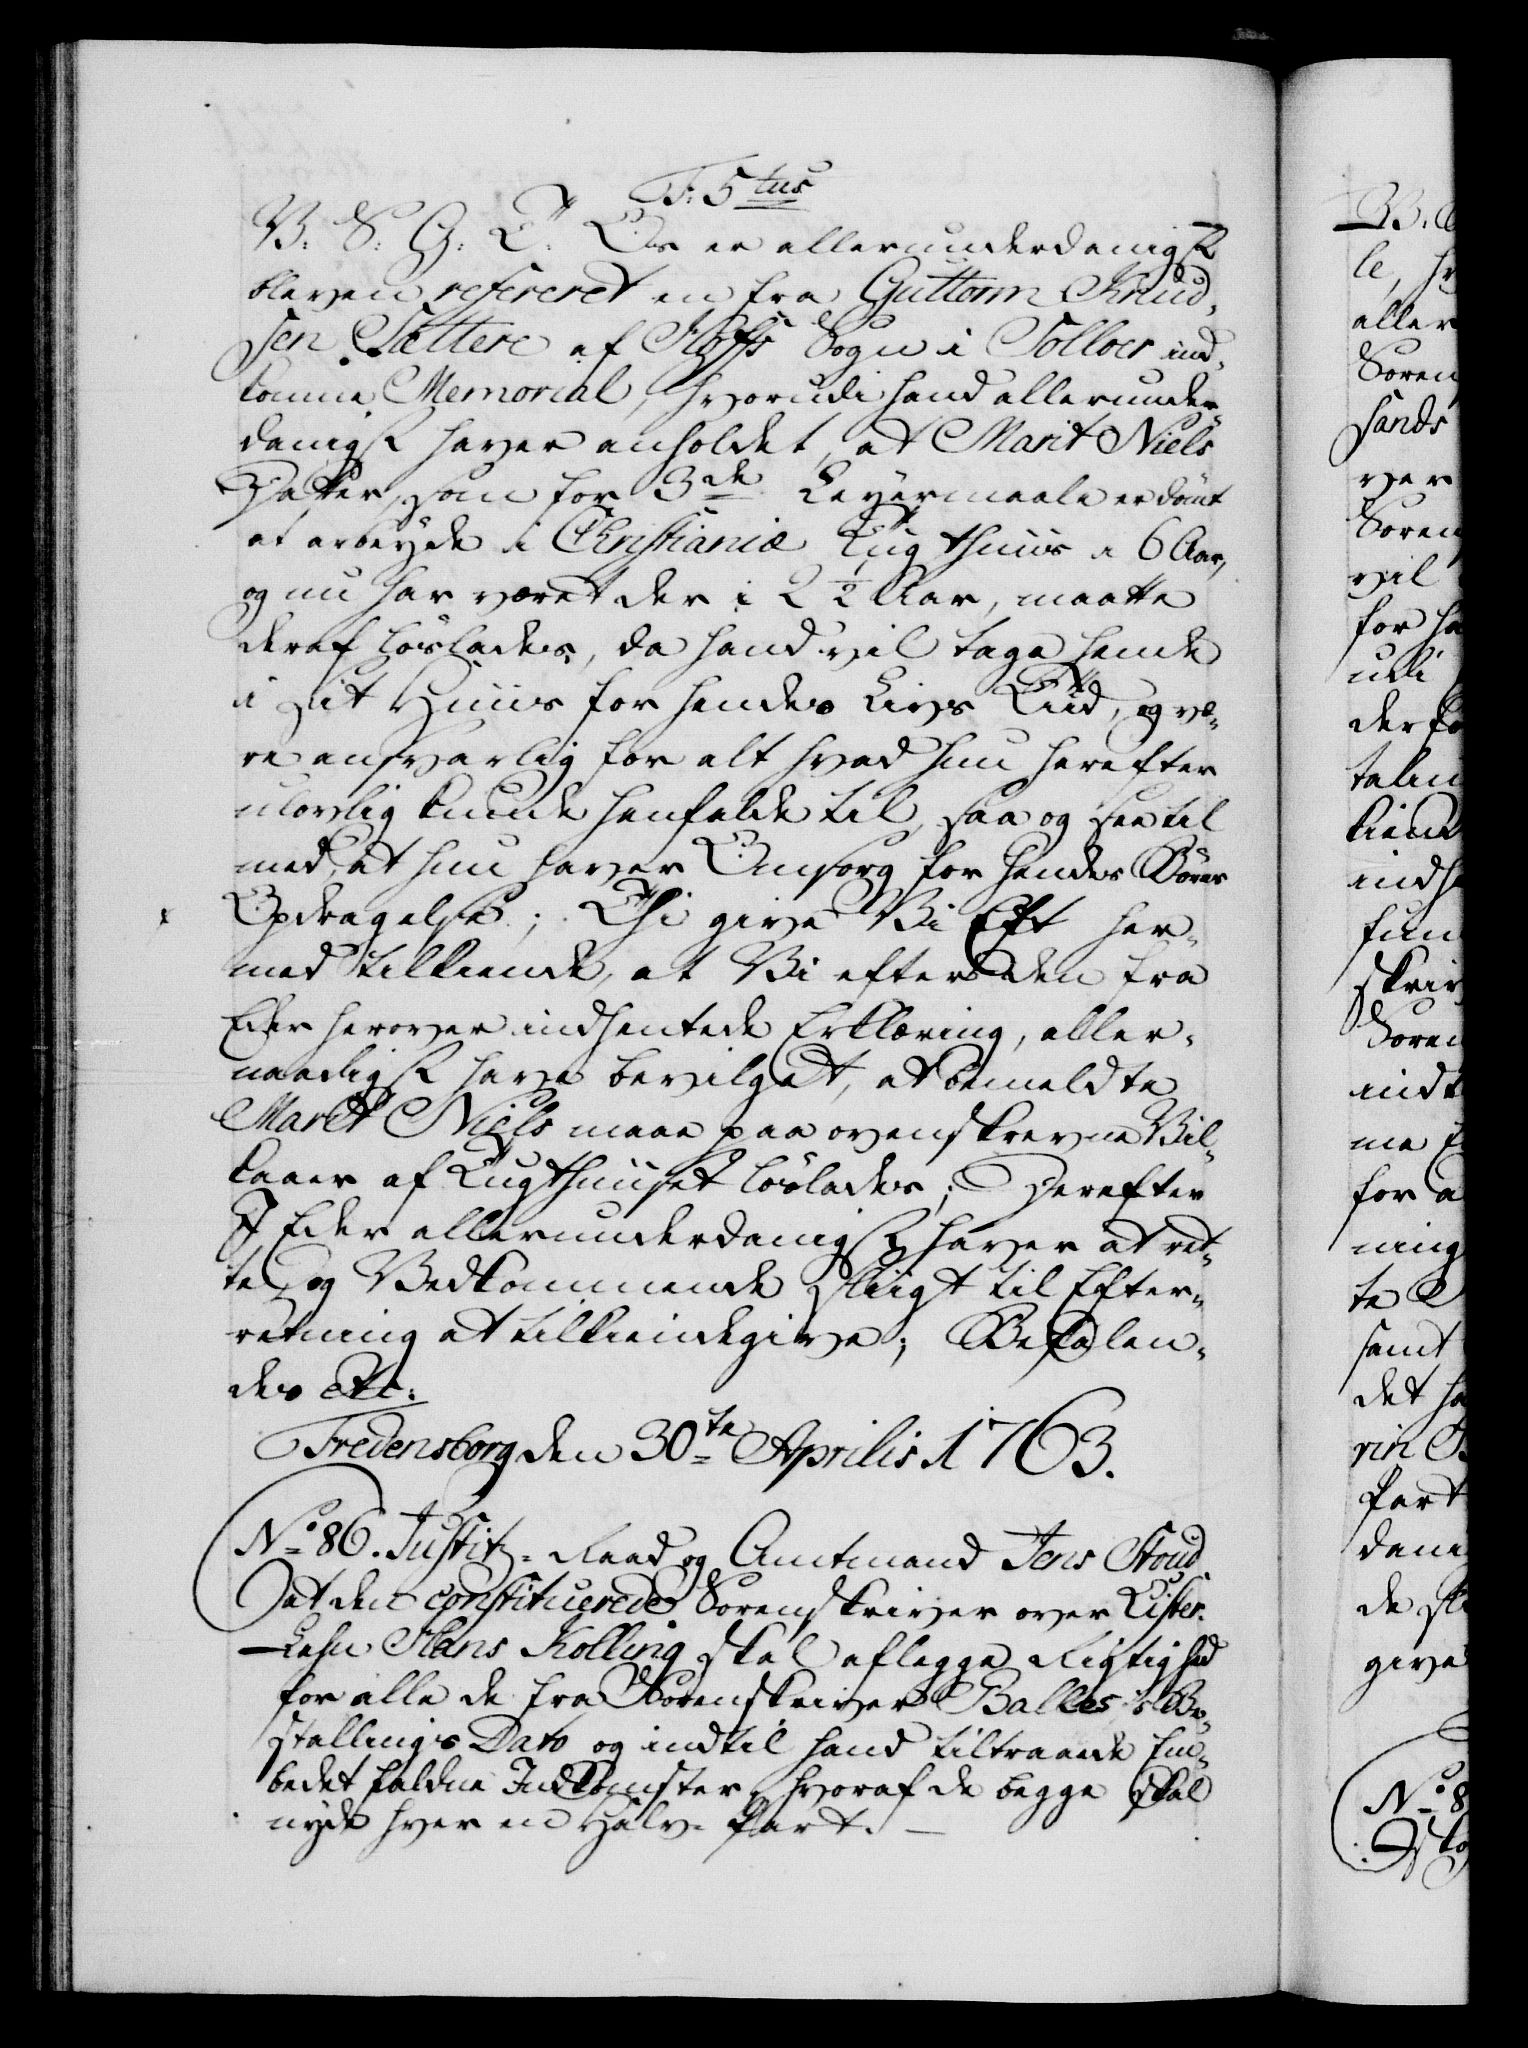 F: 5tus
V: S: G: T: Os er allerunderdanigst
bleven refereret en fra Guttorm Knud-
sen Sættere af Hoffs Sogn i Solloer ind-
komne Memorial, hvorudi hand allerunder-
danigst haver anholdet, at Marit Niels
Datter, som for 3de Leyermaale er dömt
at arbeyde i Christianiæ Tugthuus i 6 Aar,
og nu har været der i 2 1/2 Aar, maatte
deraf löslades, da hand vil tage hende
i sit Huus for hendes Livs Tiid, og væ-
re ansvarlig for alt hvad hun herefter
ulovlig kunde henfalde til, saa og see til
med, at hun haver Omsorg for hendes Börns
Opdragelse; Thi give Vi Eft her-
med tilkiende, at Vi efter den fra
Eder herover indhentede Erklæring, aller-
naadigst have bevilget, at bemeldte
Maret Niels maae paa ovenskrevne Vil-
kaar af Tugthuuset löslades; Derefter
I Eder allerunderdanigst haver at ret-
te, og Vedkommende sligt til Efter-
retning at tilkiendegive; Befalen-
des etc:
Fredensborg den 30te Aprilis 1763.
No 86. Justitz-Raad og Amtmand Jens Stoud
at den constituerede Sorenskriver over Lister-
Lehn Hans Kolling skal aflegge Rigtighed
for alle de fra Sorenskriver Balles's Be-
stallings Dato og indtil hand tiltraade Em-
bedet faldne Indkomster, hvoraf de begge skal
nyde hver en Halv-Part.